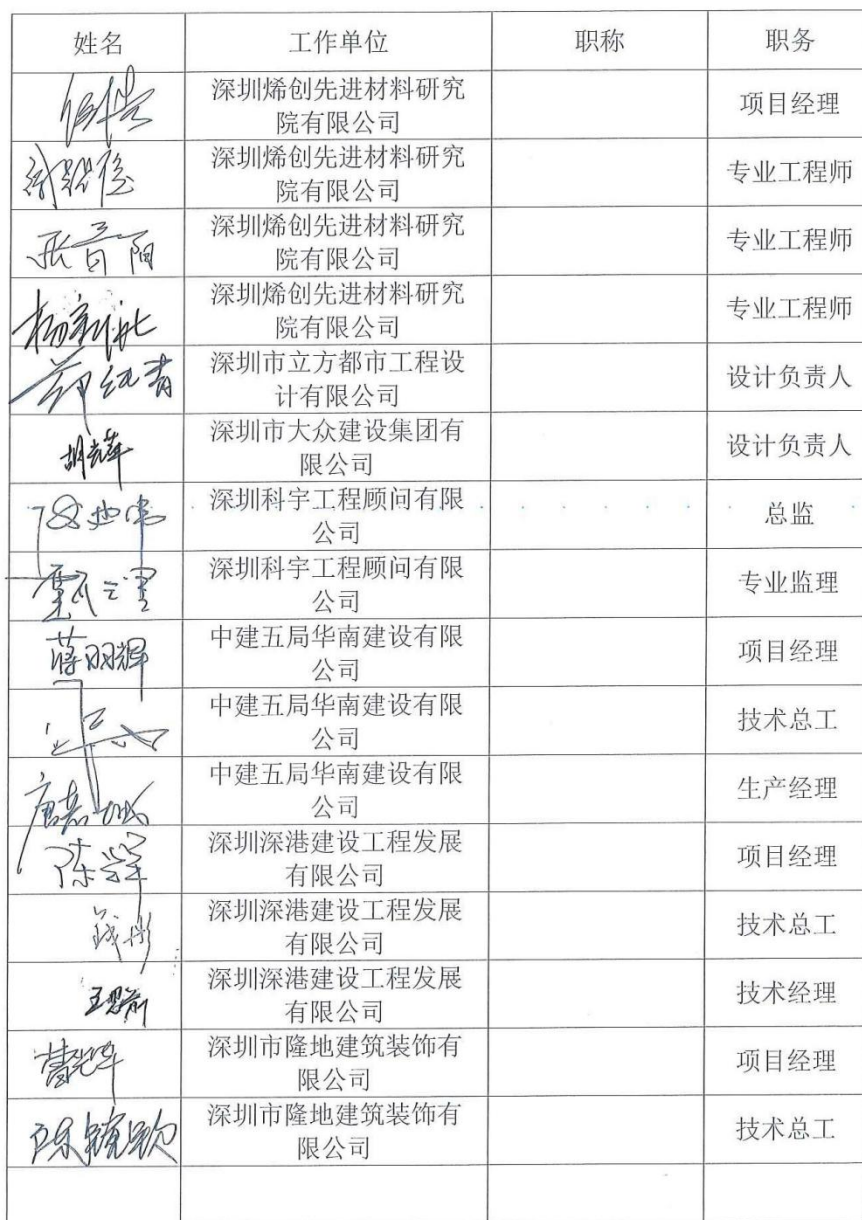 姓名 工作单位 职称 职务
深圳烯创先进材料研究
院有限公司 项目经理
深圳烯创先进材料研究
院有限公司 专业工程师
张晋阳 深圳烯创先进材料研究
院有限公司 专业工程师
深圳烯创先进材料研究
院有限公司 专业工程师
深圳市立方都市工程设
计有限公司 设计负责人
深圳市大众建设集团有
限公司 设计负责人
深圳科宇工程顾问有限
公司 总监
深圳科宇工程顾问有限
公司 专业监理
蒋明辉 中建五局华南建设有限
公司 项目经理
中建五局华南建设有限
公司 技术总工
中建五局华南建设有限
公司 生产经理
深圳深港建设工程发展
有限公司 项目经理
深圳深港建设工程发展
有限公司 技术总工
深圳深港建设工程发展
有限公司 技术经理
深圳市隆地建筑装饰有
限公司 项目经理
深圳市隆地建筑装饰有
限公司 技术总工